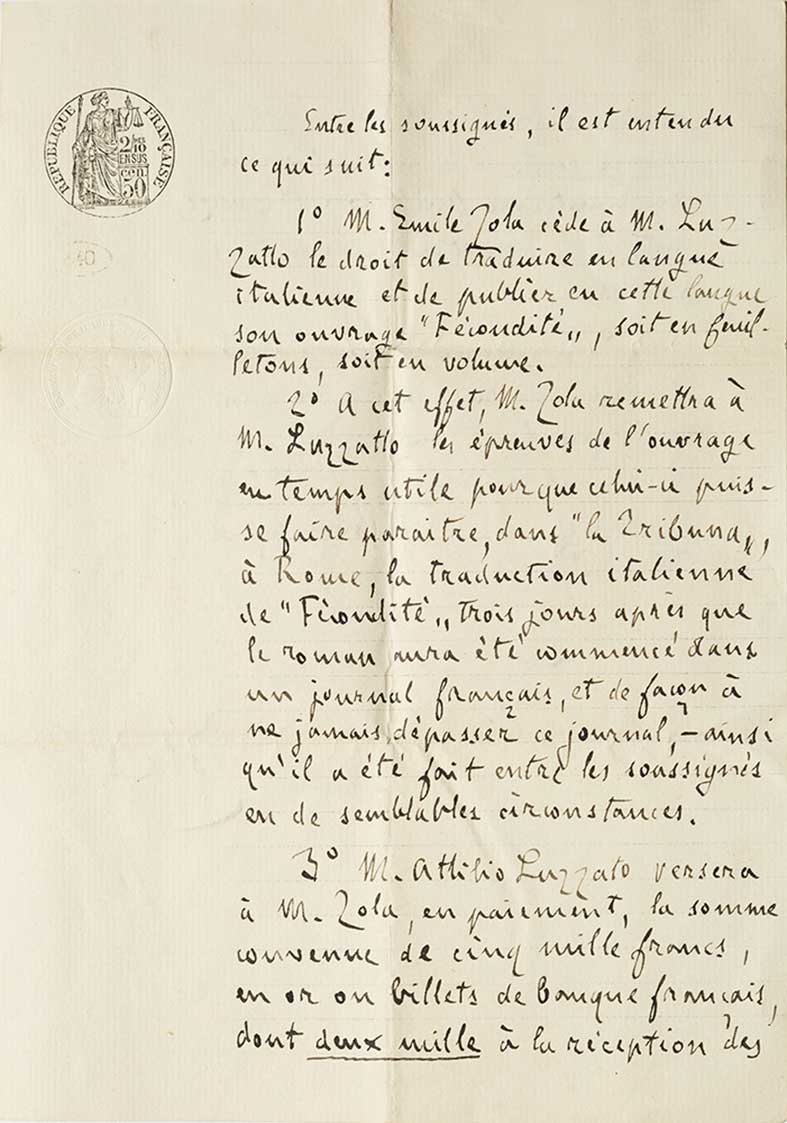 RÉPUBLIQUE FRANÇAISE
2/10
EN SUS
50
Entre les soussignés, il est entendu
ce qui suit:
1° M. Emile Zola cède à M. Luz-
zatto le droit de traduire en langue
italienne et de publier en cette langue
son ouvrage "Fécondité„, soit en feuil-
letons, soit en volume.
2° A cet effet, M. Zola remettra à
M. Luzzatto les épreuves de l'ouvrage
en temps utile pour que celui-ci puis-
se faire paraitre, dans "la Tribuna„,
à Rome, la traduction italienne
de "Fécondité„ trois jours après que
le roman aura été commencé dans
un journal français, et de façon à
ne jamais dépasser ce journal, - ainsi
qu'il a été fait entre les soussignés
en de semblables circonstances.
3° M. Attilio Luzzato versera
à M. Zola, en paiement, la somme
convenue de cinq mille francs,
en or ou billets de banque français,
dont deux mille à la réception des